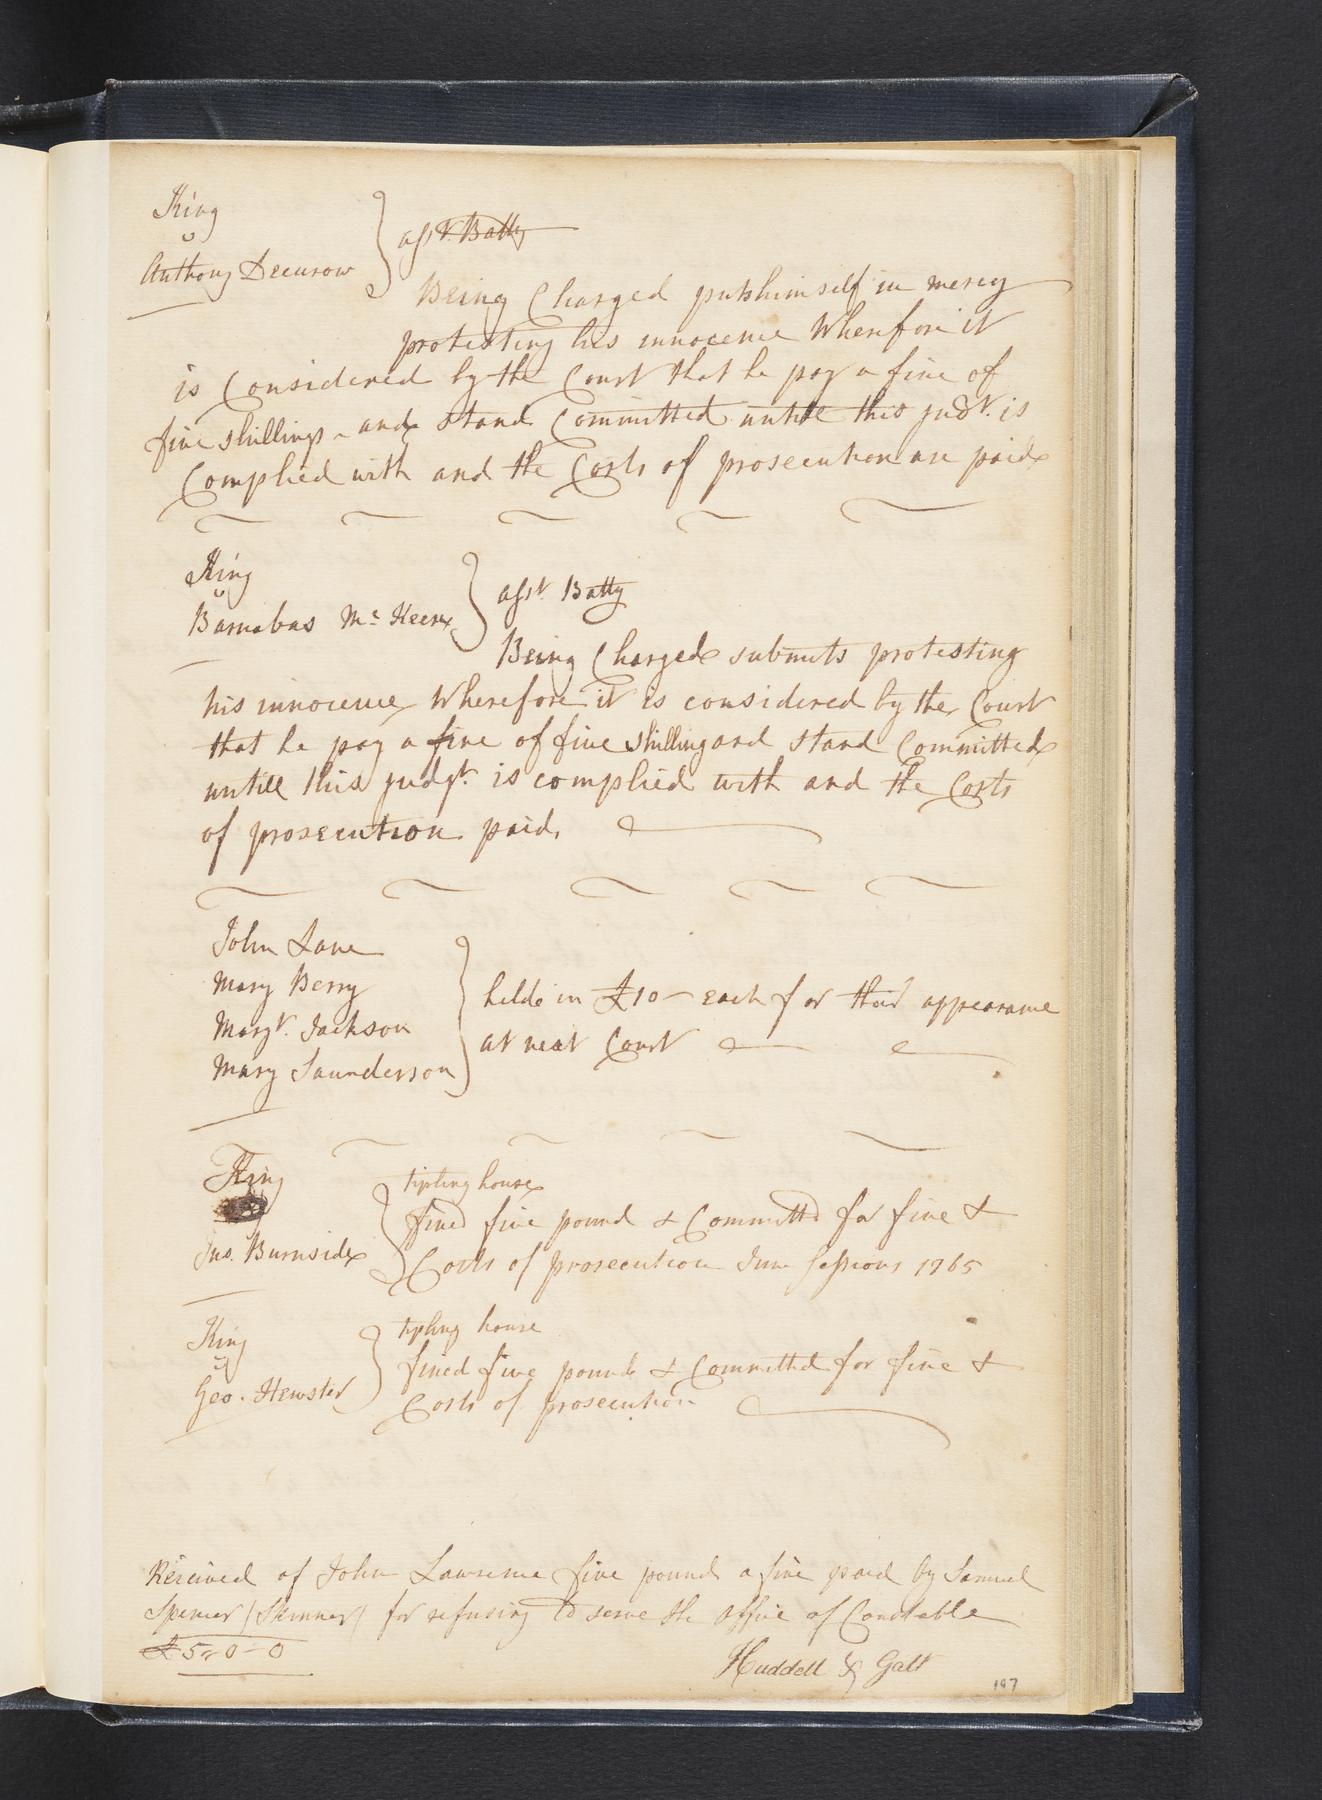 King
v
Anthony Deeurow
asst. & Batty
Being Charged puts himself in mercy
protesting his innocence Wherefore it
is Considered by the Court that he pay a fine of
five shillings - and stand Committed untill this judt. is
Complied with and the Costs of prosecution are paid
King
v
Barnabas Mc Keen
asst. Batty
Being Charged submits protesting
his innocence Wherefore it is considered by the Court
that he pay a fine of five shilling and stand Committed
untill this judgt. is complied with and the Costs
of prosecution paid.
John Lane
Mary Berry
Margt. Jackson
Mary Saunderson
held in £10 - each for their appearance
at next Court
King
Jno. Burnside
tipling house
fined five pound & Committd for fine &
Costs of prosecution June Sessions 1765
King
v
Geo. Hewster
tipling house
fined five pounds & Committed for fine &
Costs of prosecution
Received of John Lawrence five pounds a fine paid by Samuel
Spencer (Skinner) for refusing to serve the Office of Constable
£5-0-0
Huddell & Galt
197